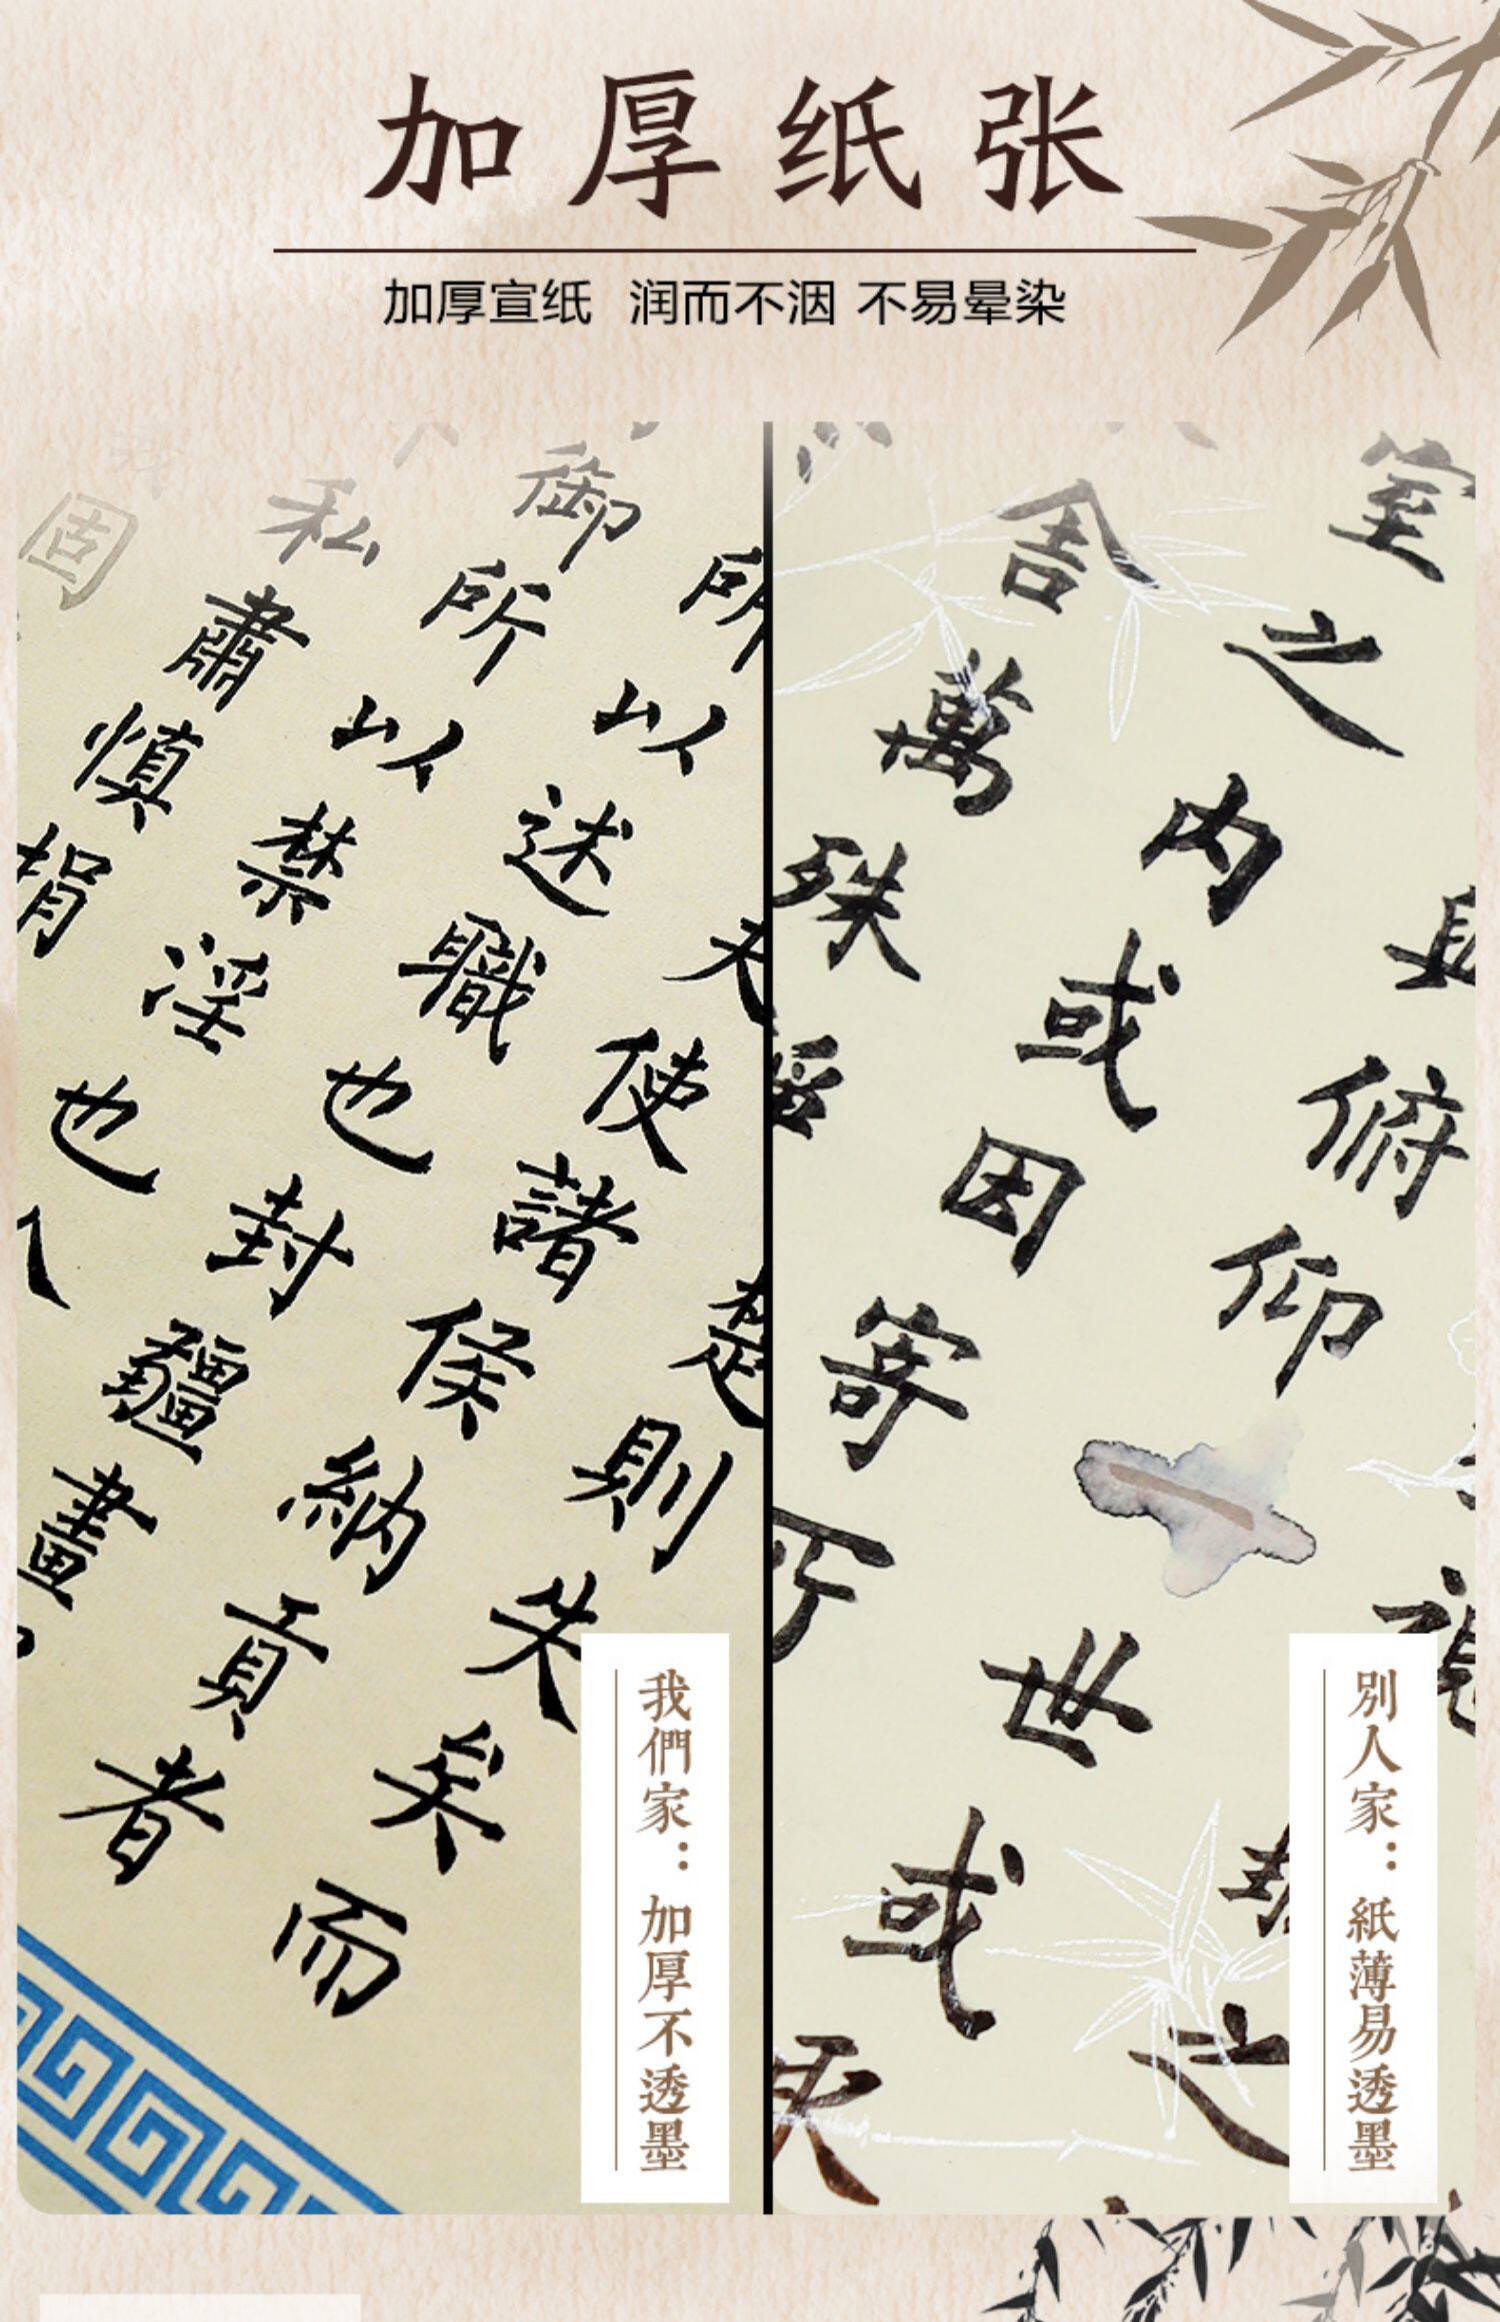 加厚纸张
加厚宣纸 润而不洇 不易晕染
所以
夫
楚
御所以述
使諸
則失
私
職
侯
矣
肅
禁
也
納
而
固
慎
淫
封
貢
捐
也
疆
者
畫
室
之
俯
舍
内
仰
萬
或
殊
因
世
寄
之
或
我們家：加厚不透墨
別人家：紙薄易透墨